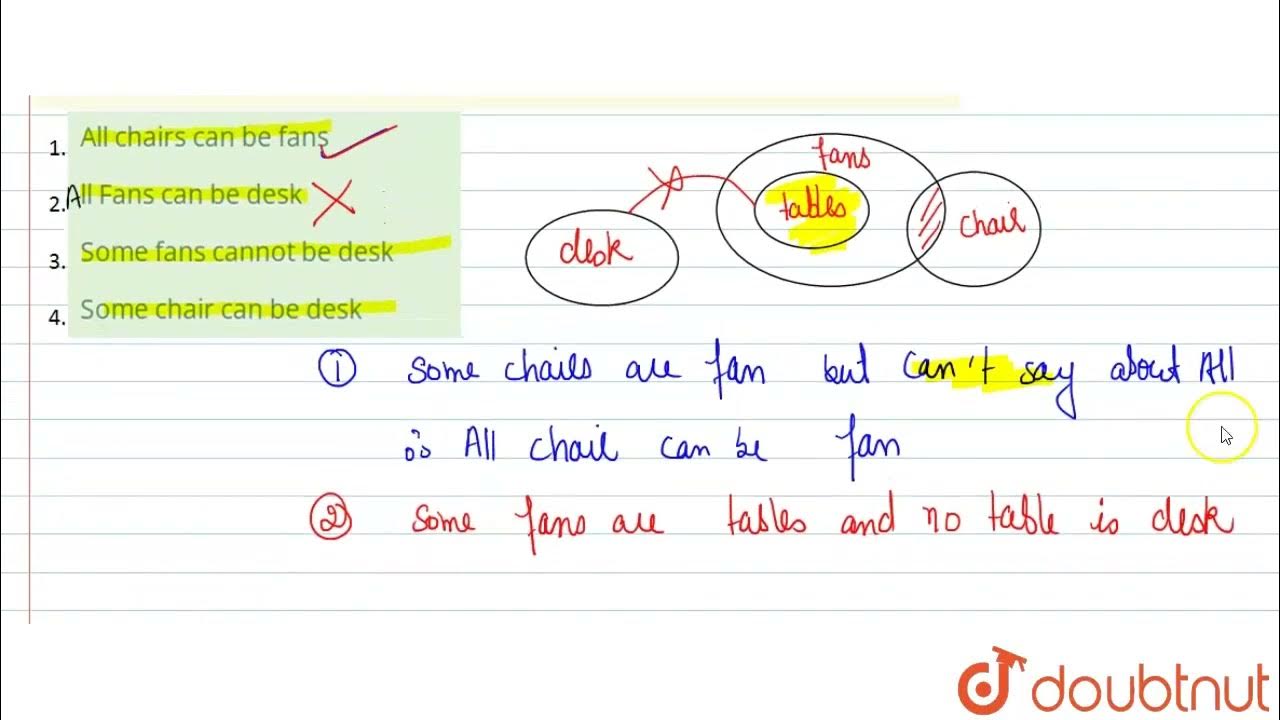 1. All chairs can be fans
2. All Fans can be desk
3. Some fans cannot be desk
4. Some chair can be desk
fans
tables
chair
desk
① Some chairs are fan but can't say about All
∴ All chair can be fan
② Some fans are tables and no table is desk
doubtnut